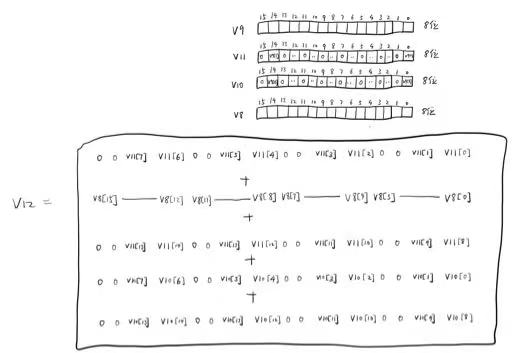 15 14 13 12 11 10 9 8 7 6 5 4 3 2 1 0
V9 8位
15 14 13 12 11 10 9 8 7 6 5 4 3 2 1 0
V11 8位
15 14 13 12 11 10 9 8 7 6 5 4 3 2 1 0
V10 8位
15 14 13 12 11 10 9 8 7 6 5 4 3 2 1 0
V8 8位
0 0 V11[7] V11[6] 0 0 V11[5] V11[4] 0 0 V11[3] V11[2] 0 0 V11[1] V11[0]
+
V12 = V8[15] V8[12] V8[11] V8[8] V8[7] V8[4] V8[3] V8[0]
+
0 0 0 0 0 0 V11[11] V11[10] 0 0 V11[9] V11[8]
+
0 0 V10[7] V10[6] 0 0 V10[5] V10[4] 0 0 V10[3] V10[2] 0 0 V10[1] V10[0]
+
0 0 0 0 0 0 V10[11] V10[10] 0 0 V10[9] V10[8]